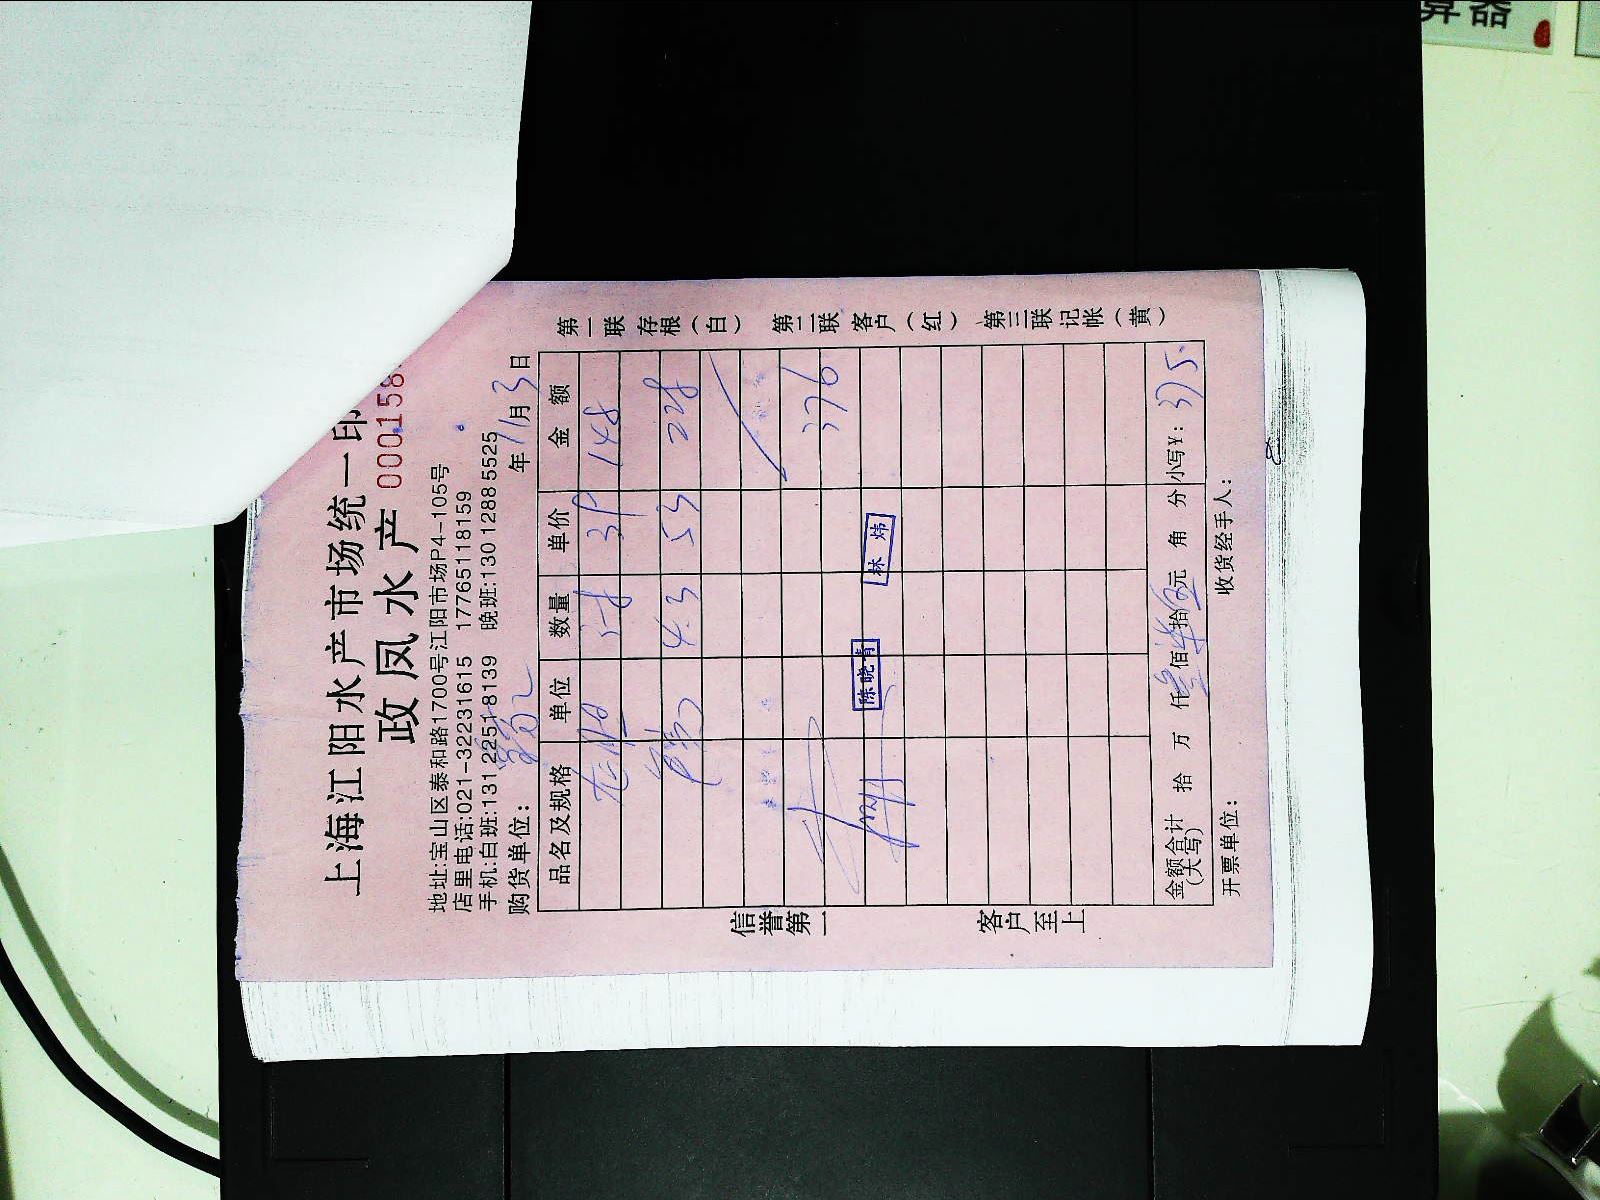 算器
上海江阳水产市场统一印
政凤水产 000158
地址:宝山区泰和路1700号江阳市场P4-105号
店里电话:021-32231615 17765118159
手机:白班:131 2251 8139 晚班:130 1288 5525
购货单位: 年11月3日
品名及规格 单位 数量 单价 金额
148
4.3 53 228
376
陈晓青 林炜
金额合计(大写) 拾 万 仟叁佰柒拾伍元 角 分 小写¥: 375.
开票单位: 收货经手人:
第一联存根(白) 第二联客户(红) 第三联记帐(黄)
信誉第一 客户至上